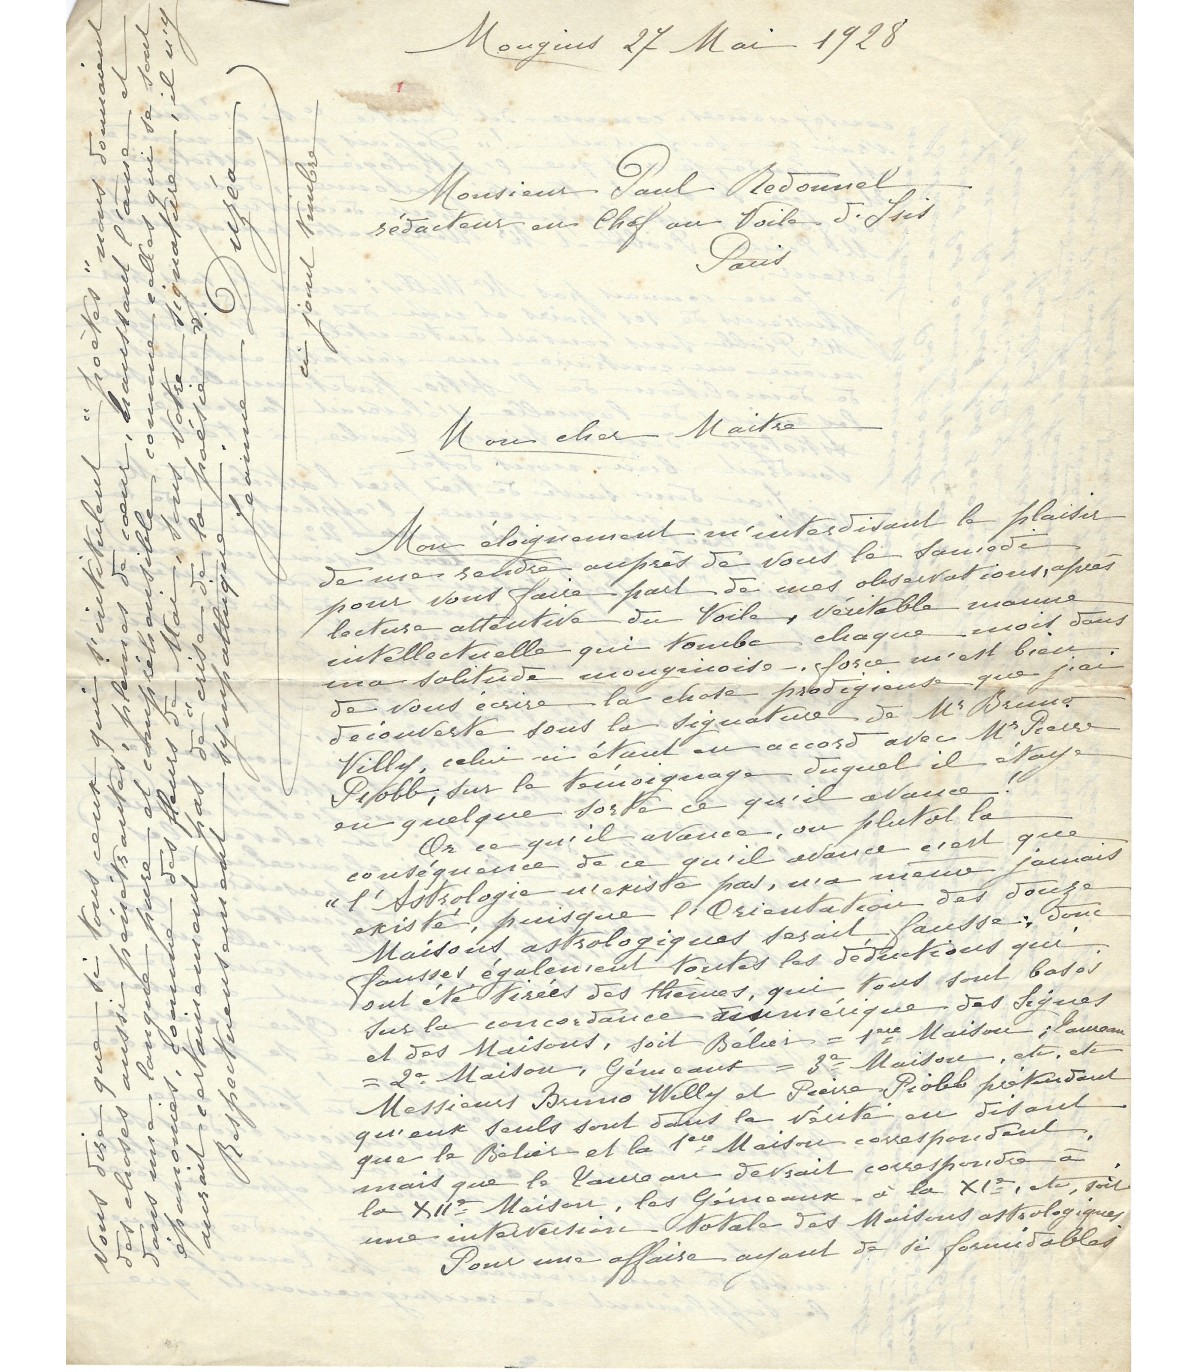 Mougins 27 Mai 1928
Monsieur Paul Redonnel
rédacteur en Chef au Voile d'Isis
Paris
Mon cher Maitre
Mon éloignement m'interdisant le plaisir
de me rendre auprès de vous le samedi
pour vous faire part de mes observations, après
lecture attentive du Voile, véritable manne
intellectuelle qui tombe chaque mois dans
ma solitude mouginoise, force m'est bien
de vous écrire la chose prodigieuse que j'ai
découverte sous la signature de Mr Bruno
Villy, celui-ci étant en accord avec Mr Pierre
Piobb, sur le témoignage duquel il étaye
en quelque sorte ce qu'il avance!
Or ce qu'il avance, ou plutot la
conséquence de ce qu'il avance c'est que
"l'Astrologie n'existe pas, n'a même jamais
existé, puisque l'Orientation des douze
Maisons astrologiques serait fausse; donc
fausses également toutes les déductions qui
ont été tirées des thèmes, qui tous sont basés
sur la concordance numérique des Signes
et des Maisons, soit Bélier = 1ère Maison; taureau
= 2e Maison, Gémeaux = 3e Maison, etc, etc
Messieurs Bruno Willy et Pierre Piobb prétendent
qu'eux seuls sont dans la vérité en disant
que le Bélier et la 1ère Maison correspondent,
mais que le Taureau devrait correspondre à
la XIIe Maison, les Gémeaux à la XIe, etc, soit
une interversion totale des Maisons astrologiques
Pour une affaire ayant de si formidables
Vous dire que si tous ceux qui s'intitulent "poètes" nous donnaient
des choses aussi pénétrantes, pleines de cœur, haussant l'âme et
dans une langue pure et compréhensible comme celles qui se sont
épanouies, comme des fleurs de Mai, sous votre signature, il n'y
aurait certainement pas de "crise de la poésie".
Respectueusement sympathique
Jeanne Duzéa
ci joint timbre